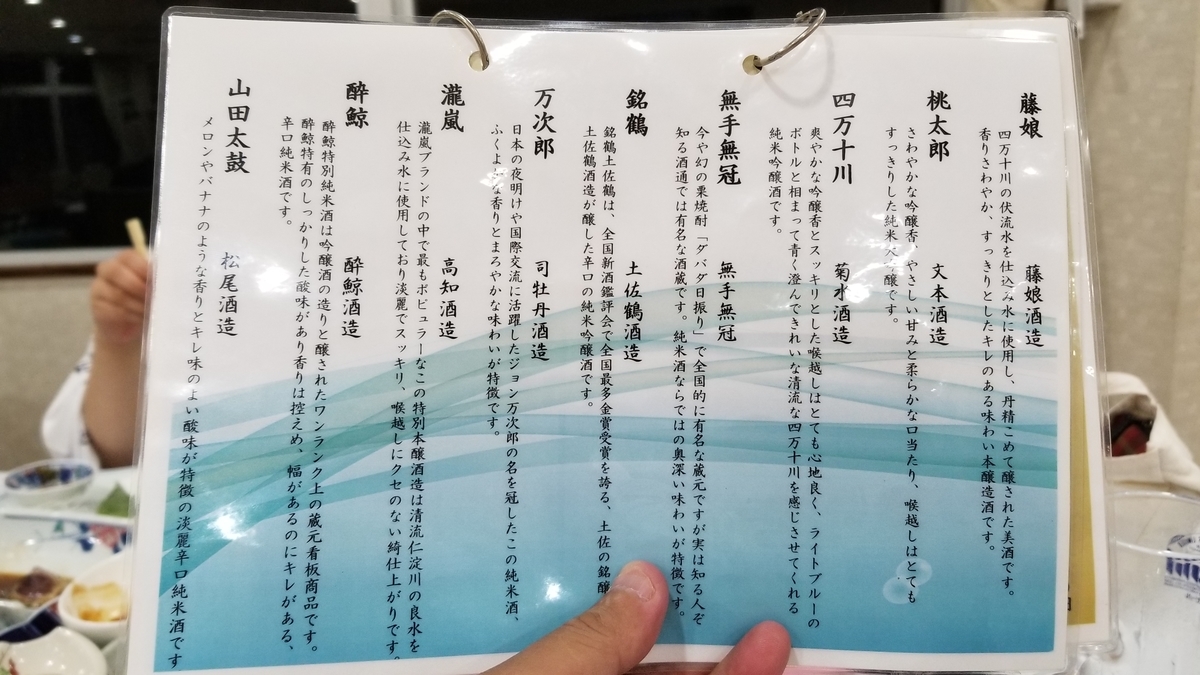 藤娘 藤娘酒造
四万十川の伏流水を仕込み水に使用し、丹精こめて醸された美酒です。
香りさわやか、すっきりとしたキレのある味わい本醸造酒です。
桃太郎 文本酒造
さわやかな吟醸香、やさしい甘みと柔らかな口当たり、喉越しはとても
すっきりした純米大吟醸です。
四万十川 菊水酒造
爽やかな吟醸香とスッキリとした喉越しはとても心地良く、ライトブルーの
ボトルと相まって青く澄んできれいな清流な四万十川を感じさせてくれる
純米吟醸酒です。
無手無冠 無手無冠
今や幻の栗焼酎「ダバダ日振り」で全国的に有名な蔵元ですが実は知る人ぞ
知る酒通では有名な酒蔵です。純米酒ならではの奥深い味わいが特徴です。
銘鶴 土佐鶴酒造
銘鶴土佐鶴は、全国新酒鑑評会で全国最多金賞受賞を誇る、土佐の銘醸
土佐鶴酒造が醸した辛口の純米吟醸酒です。
万次郎 司牡丹酒造
日本の夜明けや国際交流に活躍したジョン万次郎の名を冠したこの純米酒、
ふくよかな香りとまろやかな味わいが特徴です。
瀧嵐 高知酒造
瀧嵐ブランドの中で最もポピュラーなこの特別本醸酒造は清流仁淀川の良水を
仕込み水に使用しており淡麗でスッキリ、喉越しにクセのない綺仕上がりです。
酔鯨 酔鯨酒造
酔鯨特別純米酒は吟醸酒の造りと醸されたワンランク上の蔵元看板商品です。
酔鯨特有のしっかりした酸味があり香りは控えめ、幅があるのにキレがある、
辛口純米酒です。
山田太鼓 松尾酒造
メロンやバナナのような香りとキレ味のよい酸味が特徴の淡麗辛口純米酒です